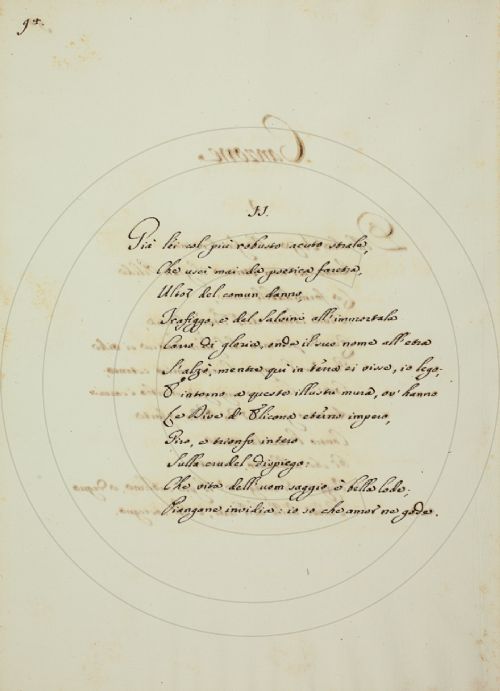 94.
II.
Già lei col più robusto acuto strale,
Che uscì mai da poetica faretra,
Ultor del comun danno,
Trafiggo, e del Salvini all'immortale
Carro di gloria, onde il suo nome all'etra
S'alzò, mentre qui in terra ei visse, io lego;
E intorno a queste illustri mura, ov'hanno
Le Dive d'Elicona eterno impero,
Giro, e trionfo intero
Sulla crudel dispiego:
Che vita dell'uom saggio è bella lode;
Piangane invidia: io so che amor ne gode.